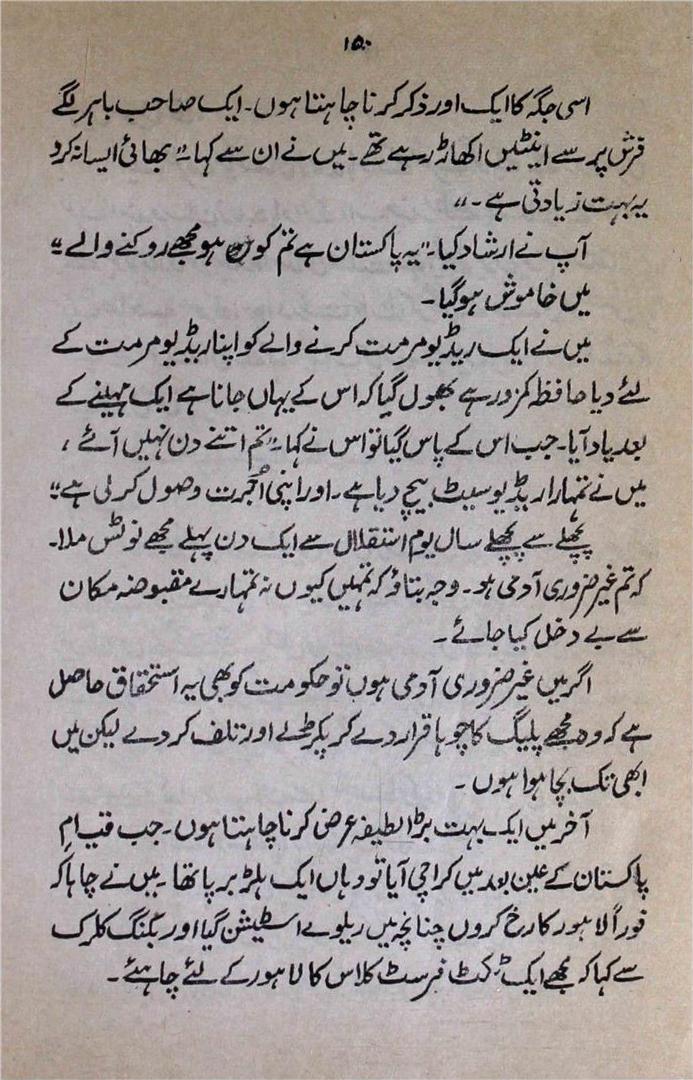 ۱۵۰
اسی جگہ کا ایک اور ذکر کرنا چاہتا ہوں۔ ایک صاحب باہر لگے
فرش پر سے اینٹیں اکھاڑ رہے تھے۔ میں نے ان سے کہا۔ "بھائی ایسا نہ کرو
یہ بہت زیادتی ہے۔"
آپ نے ارشاد کیا۔ "یہ پاکستان ہے تم کون ہو مجھے روکنے والے"
میں خاموش ہوگیا۔
میں نے ایک ریڈیو مرمت کرنے والے کو اپنا ریڈیو مرمت کے
لئے دیا حافظہ کمزور ہے بھول گیا کہ اس کے یہاں جانا ہے ایک مہینے کے
بعد یاد آیا۔ جب اس کے پاس گیا تو اس نے کہا۔ "تم اتنے دن نہیں آئے،
میں نے تمہارا ریڈیو سیٹ بیچ دیا ہے۔ اور اپنی اُجرت وصول کر لی ہے"
پچھلے سے پچھلے سال یوم استقلال سے ایک دن پہلے مجھے نوٹس ملا۔
کہ تم غیر ضروری آدمی ہو۔ وجہ بتاؤ کہ تمہیں کیوں نہ تمہارے مقبوضہ مکان
سے بے دخل کیا جائے۔
اگر میں غیر ضروری آدمی ہوں تو حکومت کو بھی یہ استحقاق حاصل
ہے کہ وہ مجھے پلیگ کا چوہا قرار دے کر پکڑلے اور تلف کر دے لیکن میں
ابھی تک بچا ہوا ہوں۔
آخر میں ایک بہت بڑا لطیفہ عرض کرنا چاہتا ہوں۔ جب قیامِ
پاکستان کے عین بعد میں کراچی آیا تو وہاں ایک ہلڑ برپا تھا۔ میں نے چاہا کہ
فوراً لاہور کا رخ کروں چنانچہ میں ریلوے اسٹیشن گیا اور بکنگ کلرک
سے کہا کہ مجھے ایک ٹکٹ فرسٹ کلاس کا لاہور کے لئے چاہئے۔